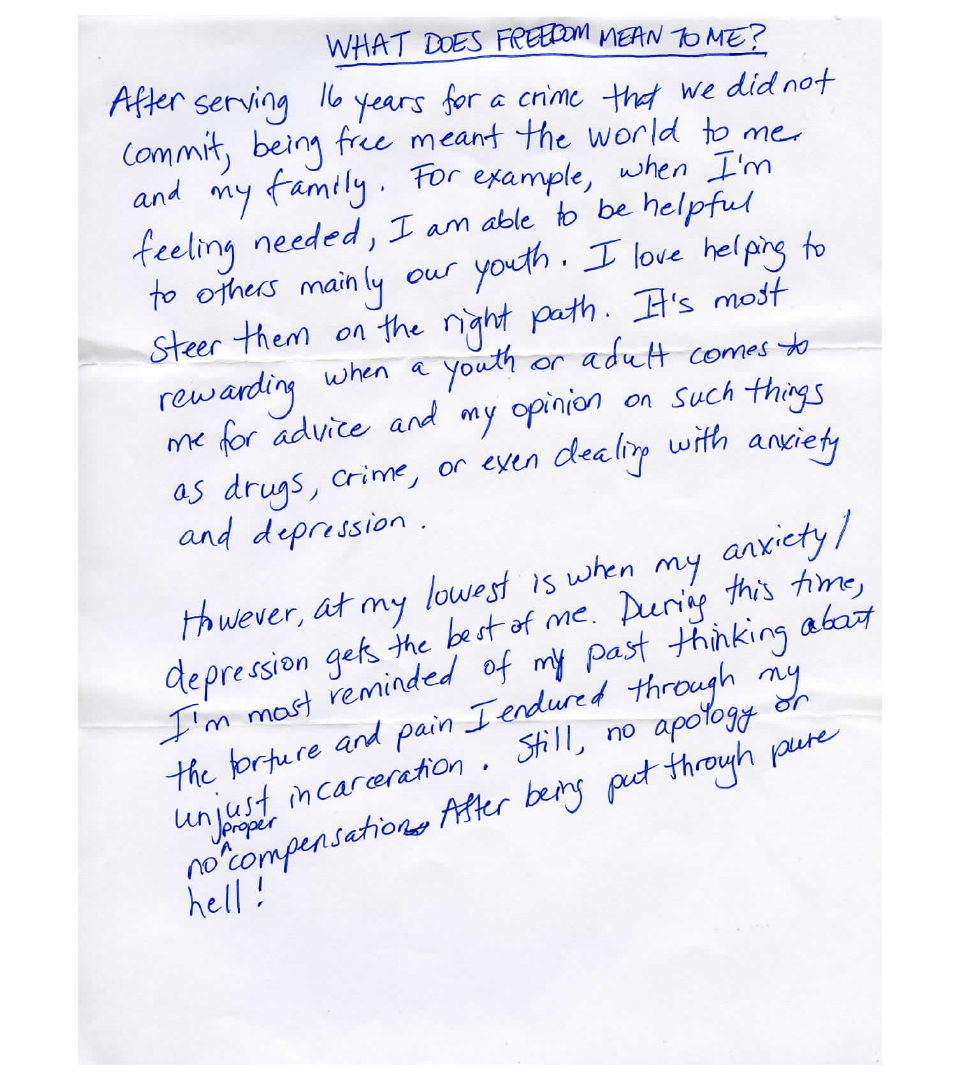 WHAT DOES FREEDOM MEAN TO ME?
After serving 16 years for a crime that we did not
commit, being free meant the world to me
and my family. For example, when I'm
feeling needed, I am able to be helpful
to others mainly our youth. I love helping to
steer them on the right path. It's most
rewarding when a youth or adult comes to
me for advice and my opinion on such things
as drugs, crime, or even dealing with anxiety
and depression.
However, at my lowest is when my anxiety/
depression gets the best of me. During this time,
I'm most reminded of my past thinking about
the torture and pain I endured through my
unjust incarceration. Still, no apology or
no proper compensation. After being put through pure
hell!